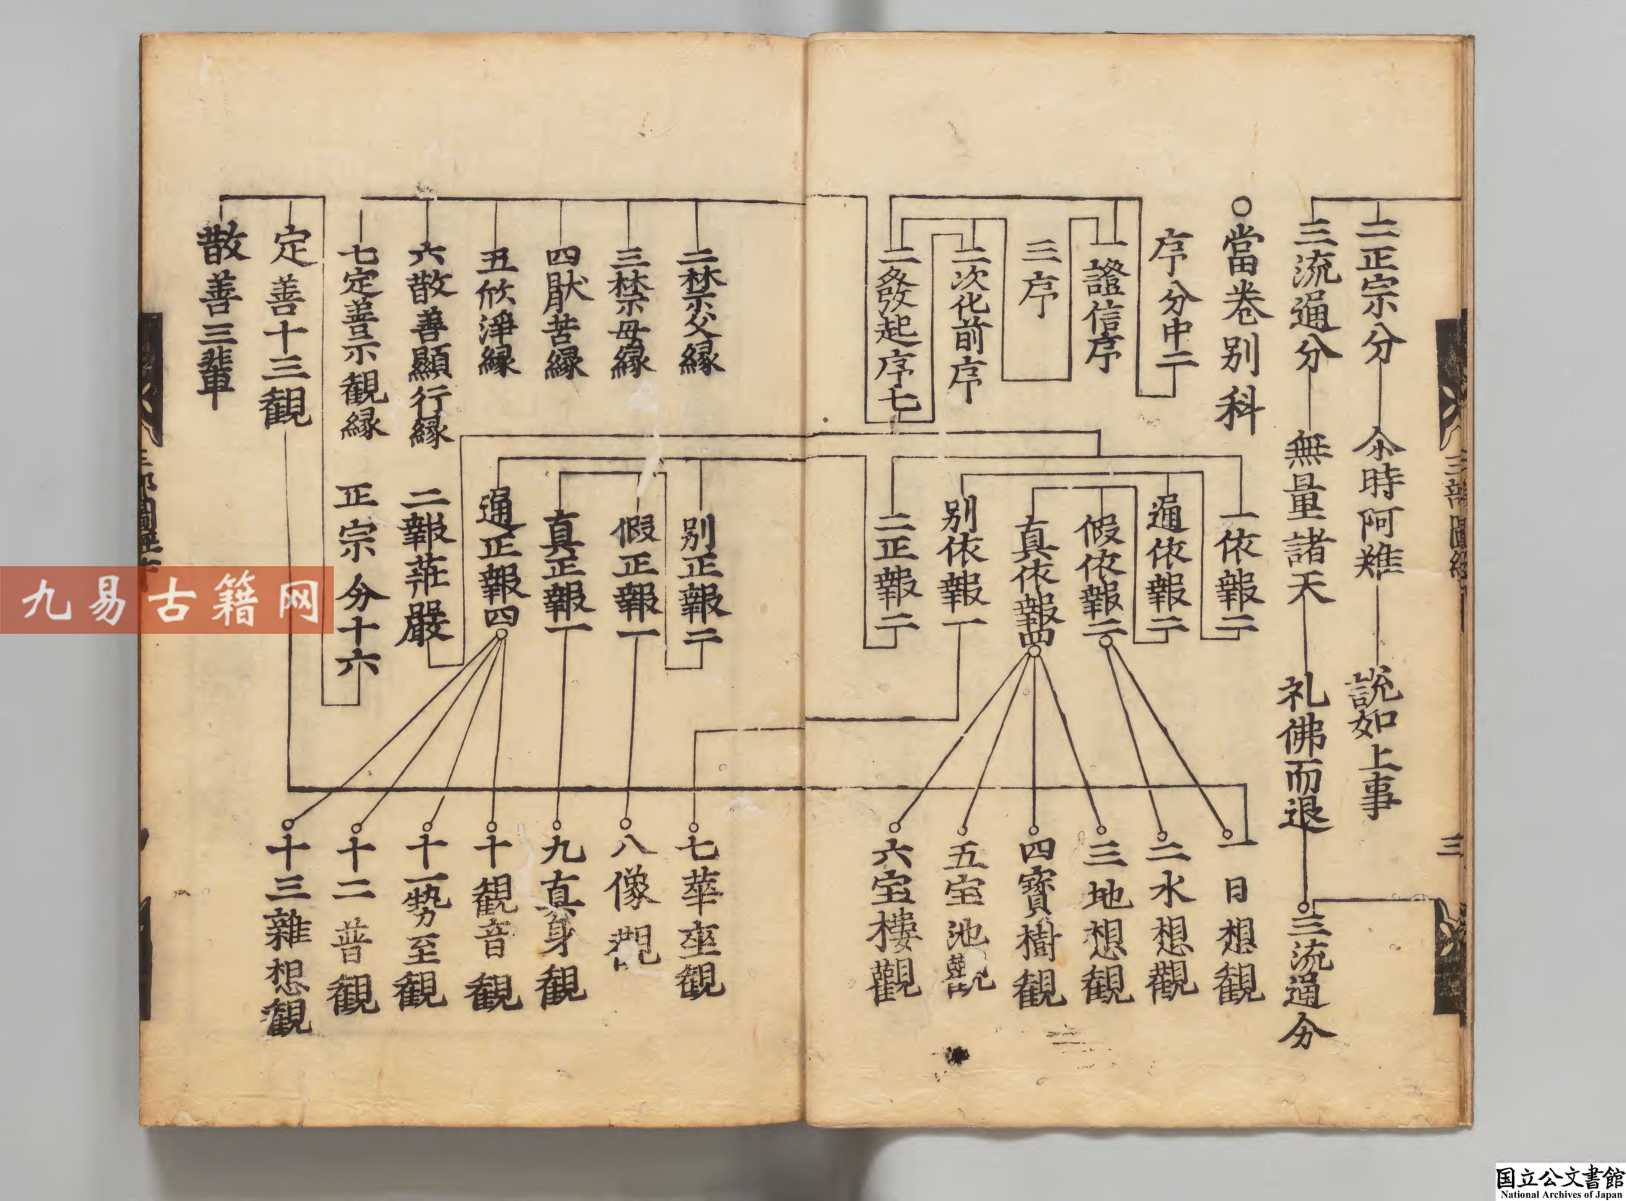 二正宗分
尒時阿難
說如上事
三流通分
無量諸天
礼佛而退
三流通分
當卷別科
序分中二
一證信序
三序
二次化前序
二發起序七
一依報二
通依報二
假依報二
真依報四
別依報一
二正報二
一日想觀
二水想觀
三地想觀
四寶樹觀
五宝池觀
六宝樓觀
二禁父緣
三禁母緣
四猒苦緣
五欣淨緣
六散善顯行緣
七定善示觀緣
別正報二
假正報一
真正報一
通正報四
二報莊嚴
正宗分十六
定善十三觀
散善三輩
七華座觀
八像觀
九真身觀
十觀音觀
十一勢至觀
十二普觀
十三雜想觀
三
九易古籍网
国立公文書館
National Archives of Japan